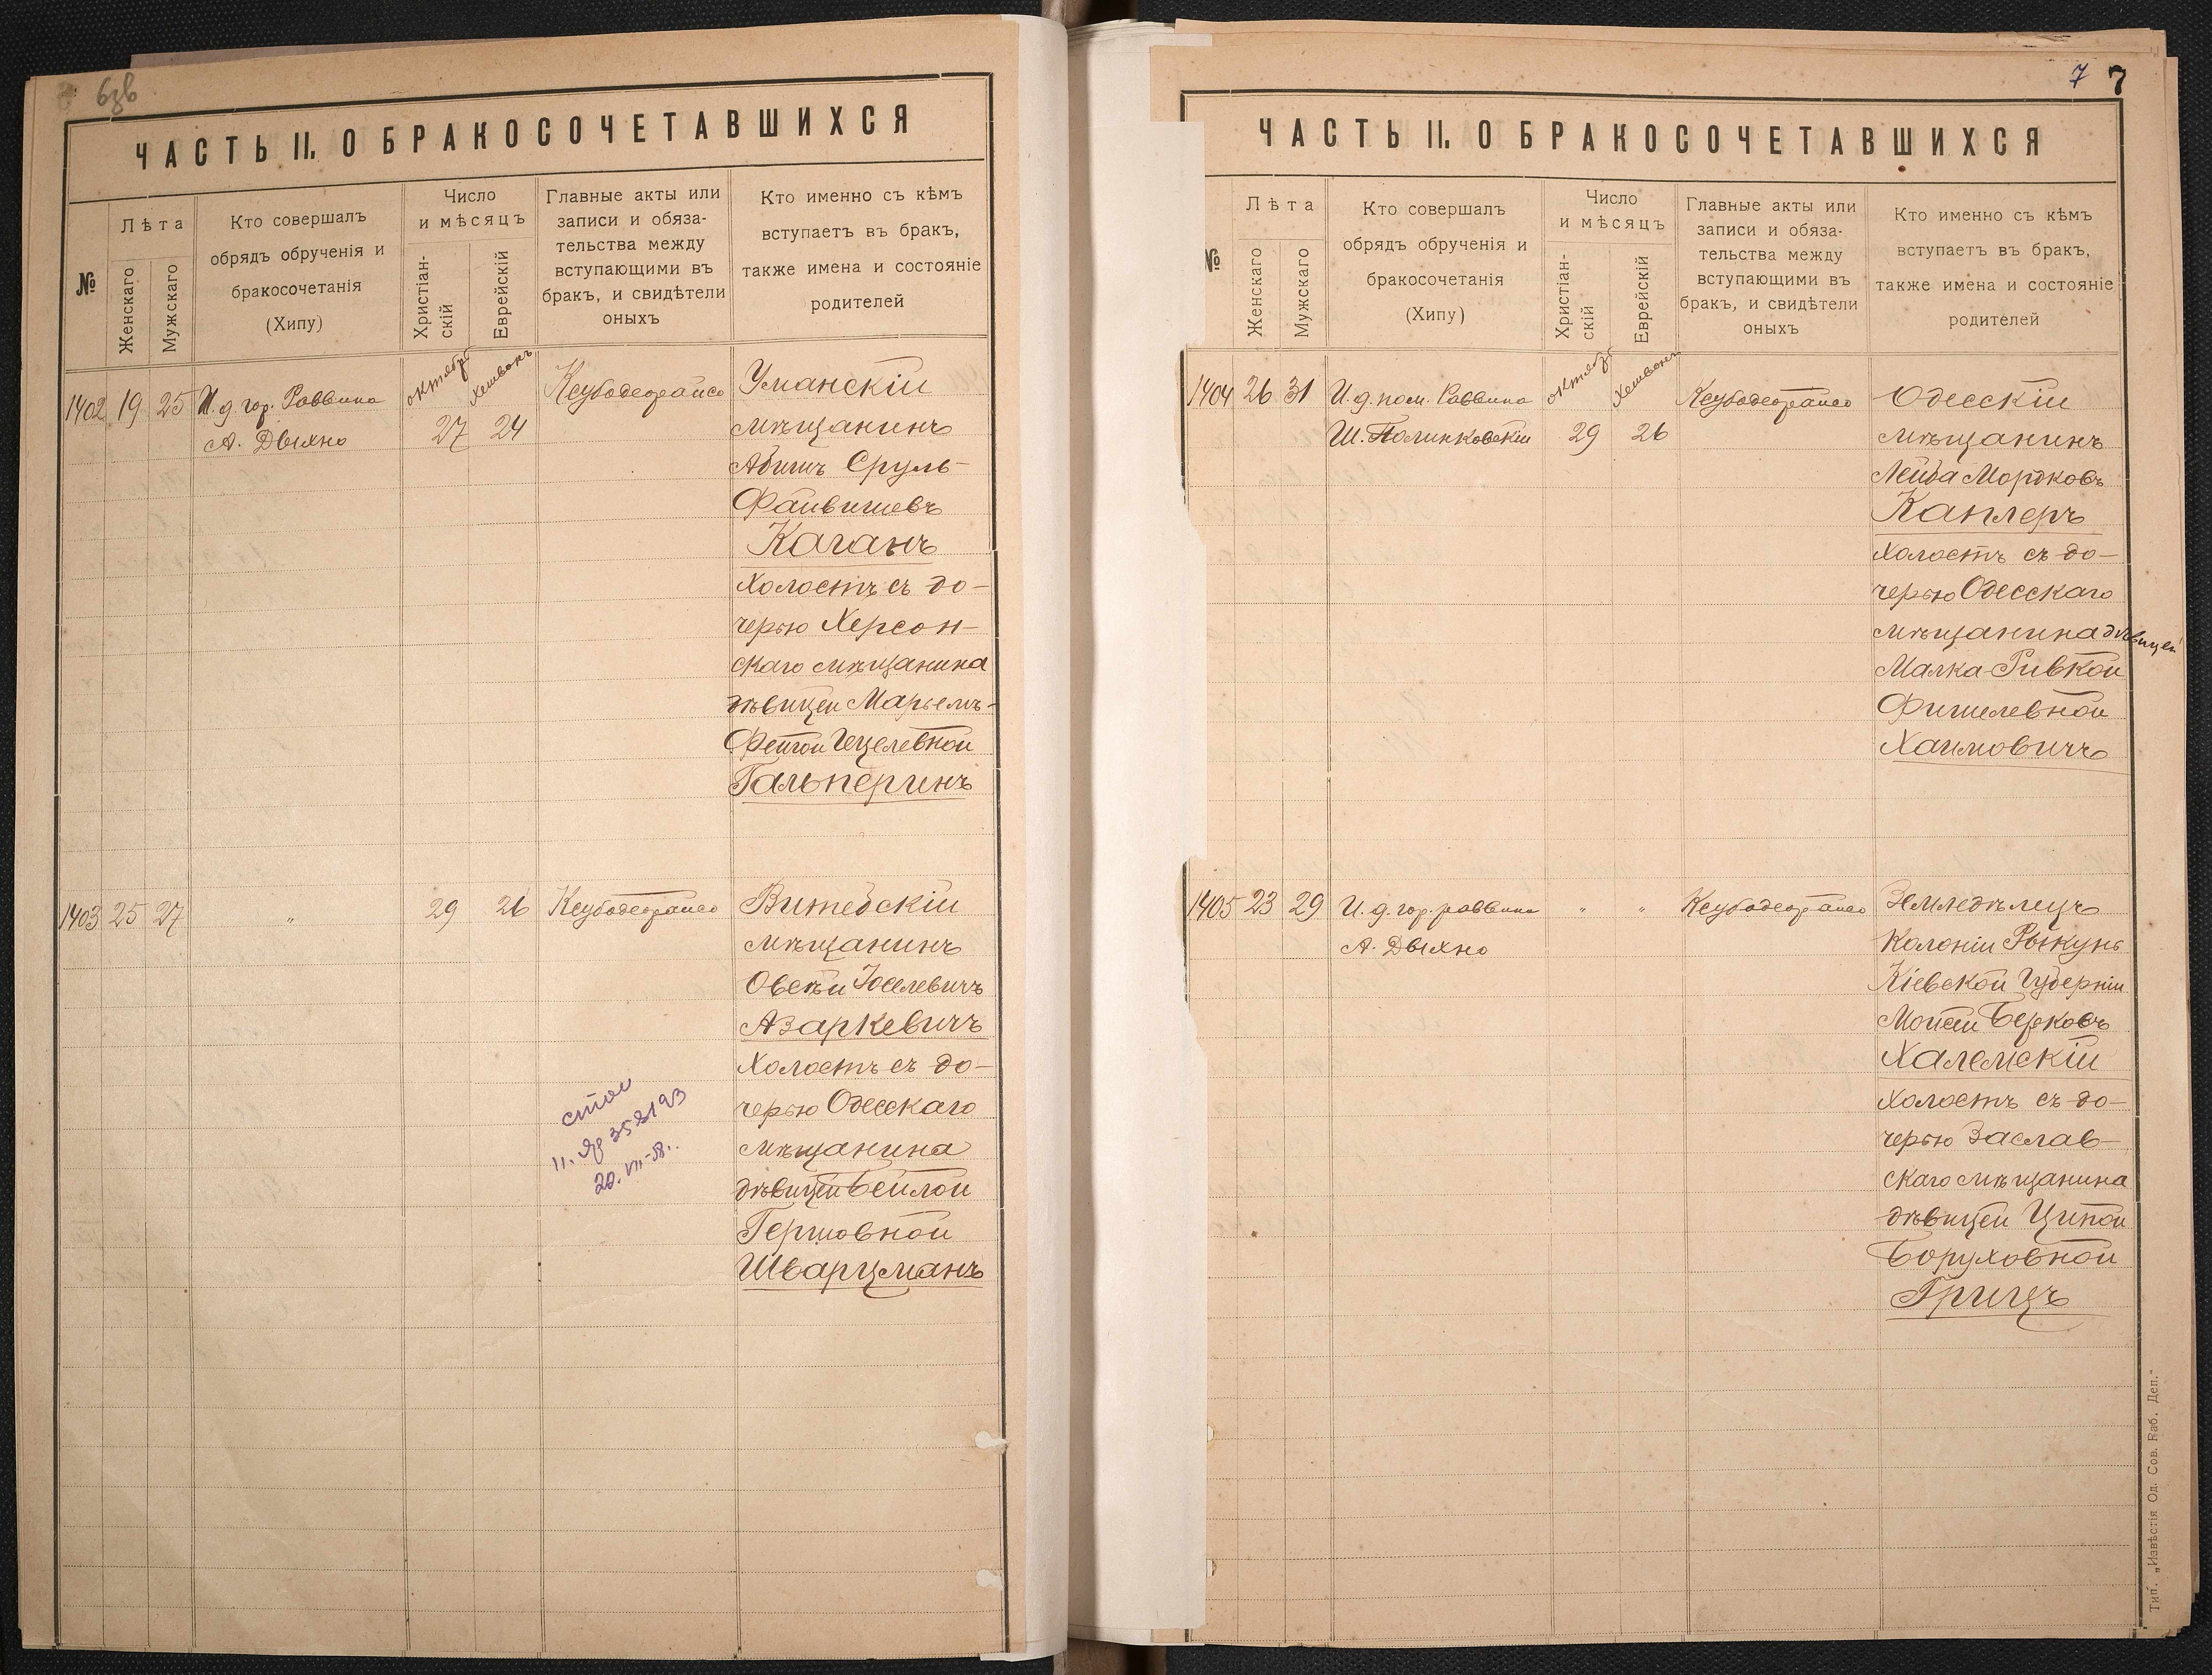 6зв
ЧАСТЬ II. О БРАКОСОЧЕТАВШИХСЯ
№
Лѣта
Женскаго
Мужскаго
Кто совершалъ
обрядъ обрученія и
бракосочетанія
(Хипу)
Число
и мѣсяцъ
Христіан-
скій
Еврейскій
Главные акты или
записи и обяза-
тельства между
вступающими въ
бракъ, и свидѣтели
оныхъ
Кто именно съ кѣмъ
вступаетъ въ бракъ,
также имена и состояніе
родителей
1402 19 25 И. д. гор. Раввина
А. Дыхно
октябрь
27
Хешвонъ
24
Ксубодеорайсо
Уманскій
мѣщанинъ
Абишъ Сруль-
Файвишевъ
Каганъ
холостъ съ до-
черью Херсон-
скаго мѣщанина
дѣвицей Марьемъ-
Фейгой Гецелевной
Гальперинъ
1403 25 27 " 29 26 Ксубодеорайсо
Витебскій
мѣщанинъ
Овсѣй Іоселевичъ
Азаркевичъ
холостъ съ до-
черью Одесскаго
мѣщанина
дѣвицей Бейлой
Гершовной
Шварцманъ
20.VII-58.
7 7
ЧАСТЬ II. О БРАКОСОЧЕТАВШИХСЯ
№
Лѣта
Женскаго
Мужскаго
Кто совершалъ
обрядъ обрученія и
бракосочетанія
(Хипу)
Число
и мѣсяцъ
Христіан-
скій
Еврейскій
Главные акты или
записи и обяза-
тельства между
вступающими въ
бракъ, и свидѣтели
оныхъ
Кто именно съ кѣмъ
вступаетъ въ бракъ,
также имена и состояніе
родителей
1404 26 31 И. д. пом. Раввина
Ш. Полинковскій
октябрь
29
Хешвонъ
26
Ксубодеорайсо
Одесскій
мѣщанинъ
Лейба Мордковъ
Каплеръ
холостъ съ до-
черью Одесскаго
мѣщанина дѣвицей
Малка-Ривкой
Фишелевной
Хаимовичъ
1405 23 29 И. д. гор. раввина
А. Дыхно
" " Ксубодеорайсо
Земледѣлецъ
Колоніи Рыкунь
Кіевской Губерніи
Мойсей Берковъ
Халемскій
холостъ съ до-
черью Заслав-
скаго мѣщанина
дѣвицей Ципой
Боруховной
Грицъ
Тип. „Извѣстія Од. Сов. Раб. Деп."